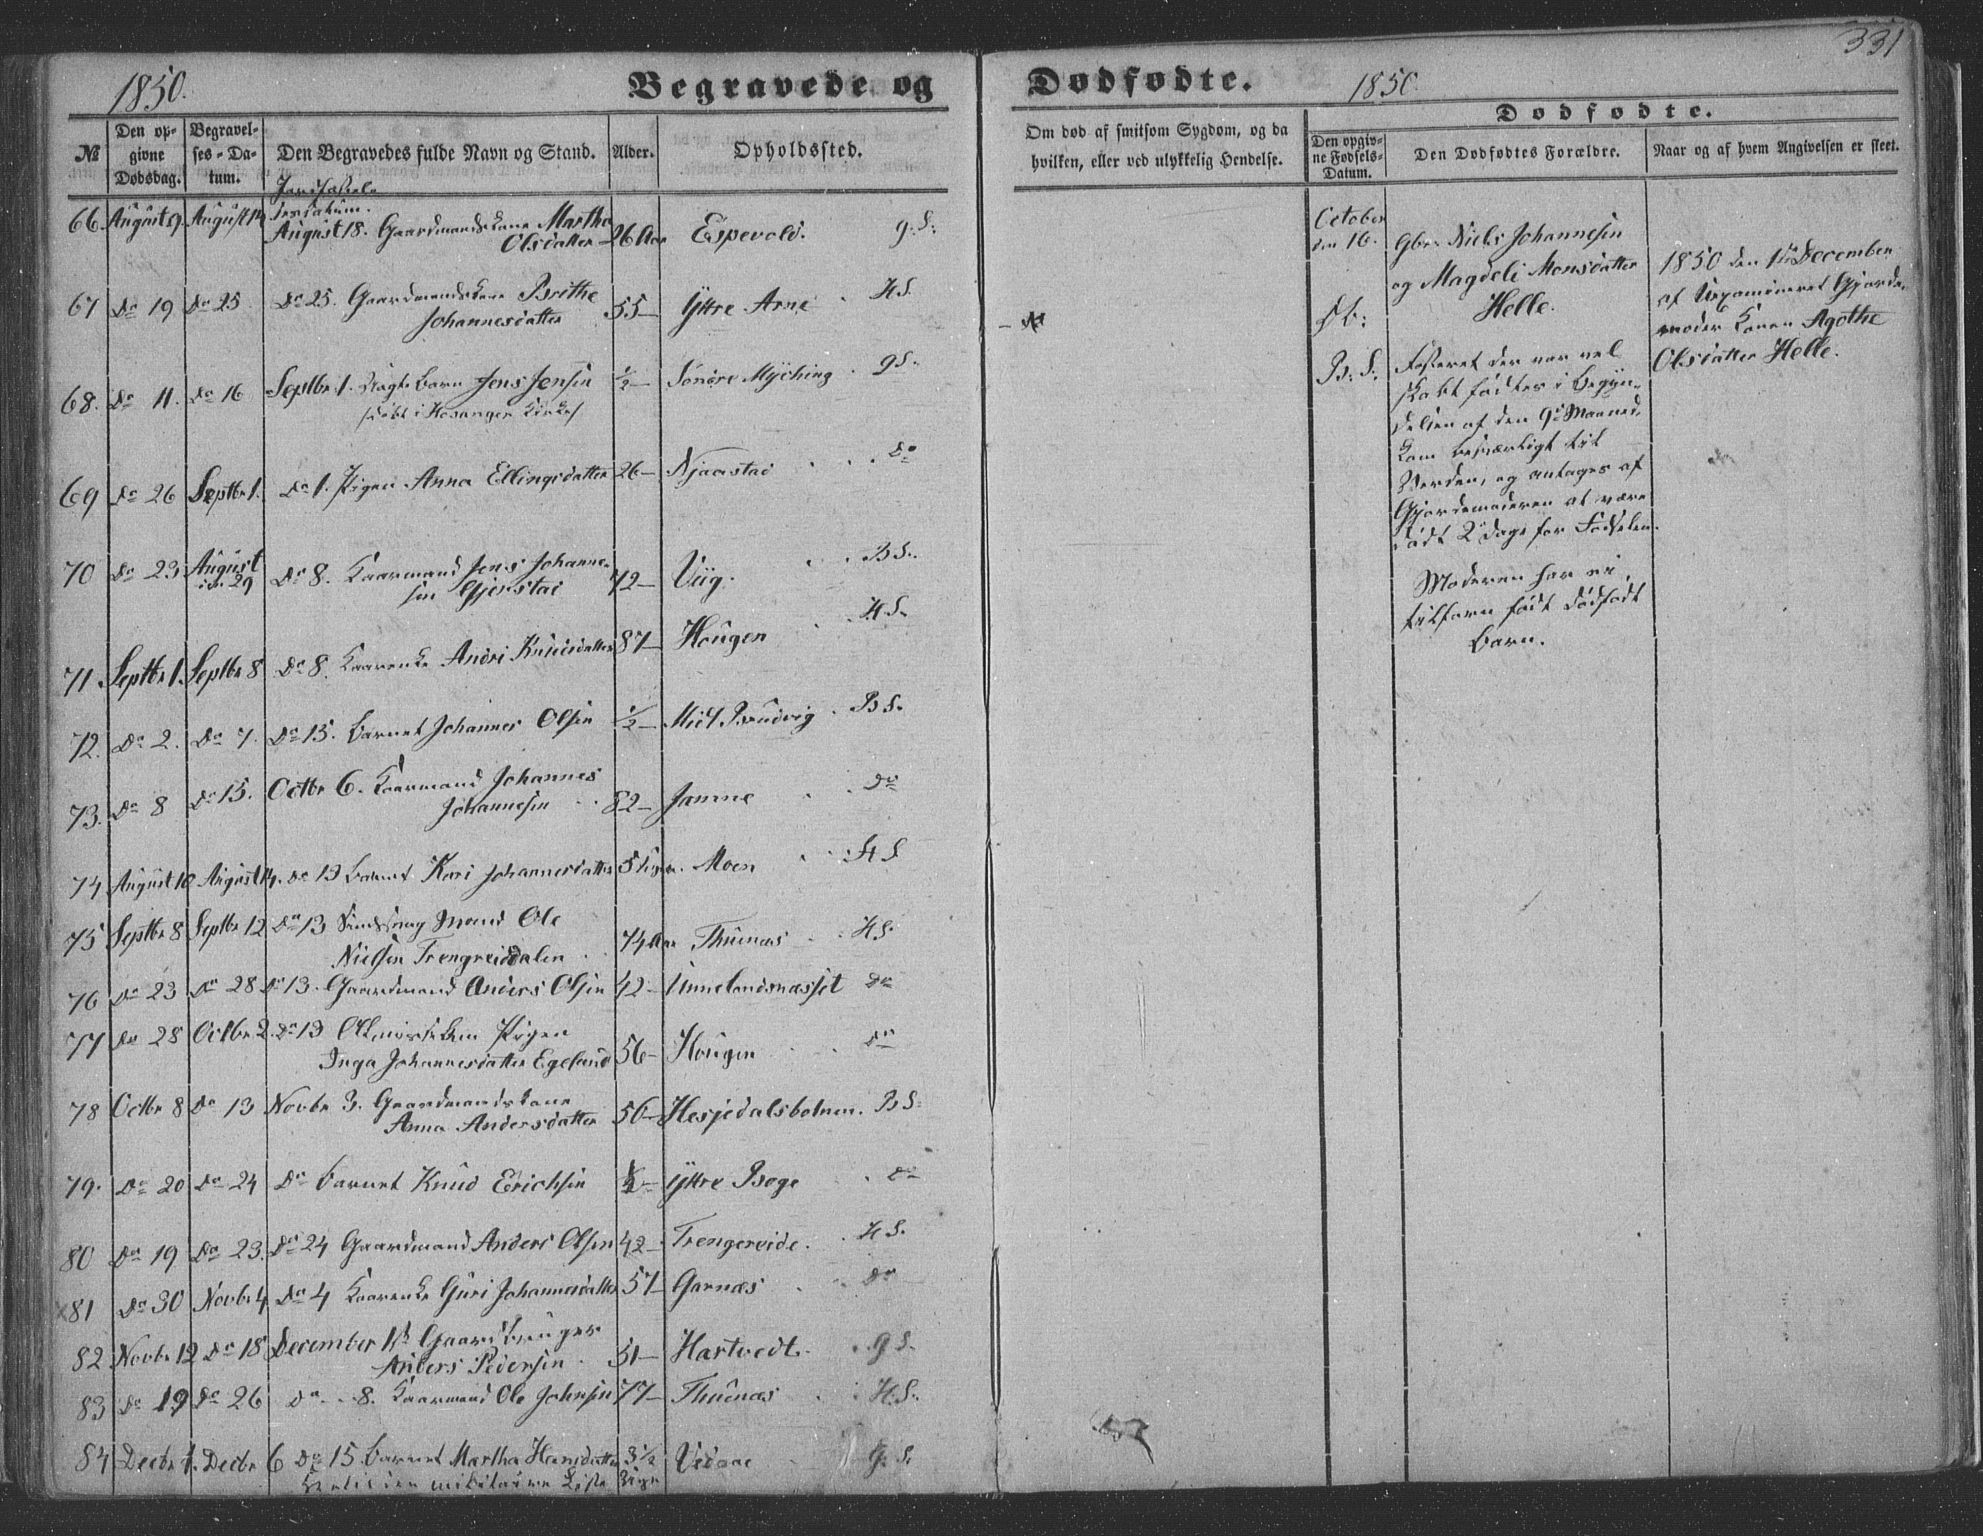 331
1850.
Begravede og Dødfødte.
1850.
№
Den opgivne Dødsdag.
Begravelses-Datum.
Den Begravedes fulde Navn og Stand.
Alder.
Opholdssted.
Om død af smitsom Sygdom, og da hvilken, eller ved ulykkelig Hendelse.
Dødfødte.
Den opgivne Fødsels-Datum.
Den Dødfødtes Forældre.
Naar og af hvem Angivelsen er skeet.
66. August 9. August 14 August 18. Gaardmandskone Martha
Olsdatter 26 Aar Espevold. G. S.
67 Do 19 Do 25 Do 25. Gaardmandskone Brithe
Johannesdatter 55 Yttre Arne H S.
68. Do 11. Do 16 Septbr 1. Barn Jens Jensen ½ Søndre Mjelding G S.
døbt i Hosanger Kirke
69 Do 26 Septbr 1. Do 1. Pigen Anna Ellingsdatter 26 Njaastad Do
70 Do 23 August den 29 Do 8. Kaarmand Jens Johannesen
Gjerstad 72 Viig. B S.
71. Septbr 1. Septbr 8 Do 8. Kaarenke Andri Knudsdatter 87 Hougen H S.
72. Do 2. Do 7. Do 15. Barnet Johannes Olsen ½ Midt Brudvig B S.
73. Do 8 Do 15. Octbr 6. Kaarmand Johannes
Johannesen 82 Jamne Do
74 August 10 August 14. Do 13 Barnet Kari Johannesdatter 5 Moen H S
75 Septbr 8 Septbr 12 Do 13 Mand Ole
Nielsen Trengreiddalen 74 Aar Thunæs H S.
76 Do 23 Do 28 Do 13. Gaardmand Anders Olsen 42 Unnelandsnæsset Do
77 Do 28 Octbr 2. Do 13 Pigen
Inga Johannesdatter Egeland 56 Hougen Do
78 Octbr 8 Do 13 Novbr 3. Gaardmandskone
Anna Andersdatter 56 Hesjedalsbotnen. B S.
79. Do 20 Do 24 Do Barnet Knud Erichsen ½ Yttre Boge Do
80 Do 19 Do 23. Do 24 Gaardmand Anders Olsen 42 Trengereide. H S.
81 Do 30 Novbr 4 Do 4 Kaarenke Guri Johannesdatter 57 Garnæs Do
82 Novbr 12 Do 18 December 1st Gaardbruger
Anders Pedersen 51 Hartvedt. G S.
83 Do 19 Do 26 Do 8. Kaarmand Ole Johnsen 77 Thunæs H. S.
84 Decbr 1. Decbr 6 Do 15 Barnet Martha Hansdatter 3½ Vedaae G. S.
October
den 16.
Gbr. Niels Johannesen
og Magdeli Monsdatter
Helle.
1850 den 1st December
af Uexamineret Gjorde-
moder Konen Agothe
Olsdatter Helle.
B. S.
Fosteret der var vel
skabt fødtes i Begyn-
delsen af den 9de Maaned,
kom besværligt til
Verden, og antages af
Gjordemoderen at være
død 2 Dage før Fødselen.
Moderen har ei
tilforn født dødfødt
Barn.